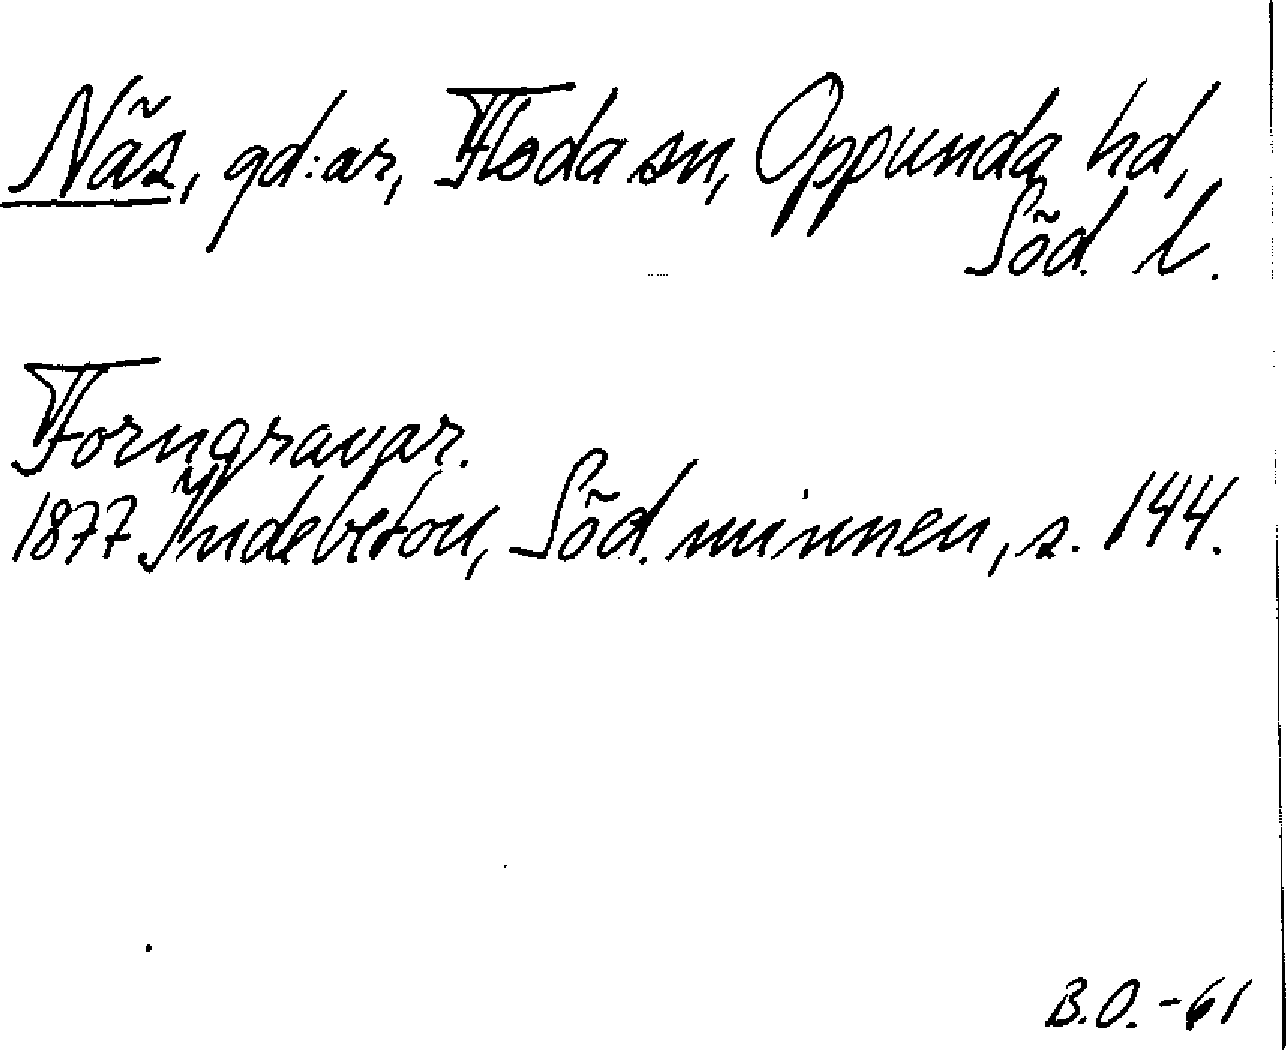 Näs, gd:ar, Floda sn, Oppunda hd,
Söd. l.
Forngravar.
1877 Indebetou, Söd. minnen, s. 144.
B.O. -61